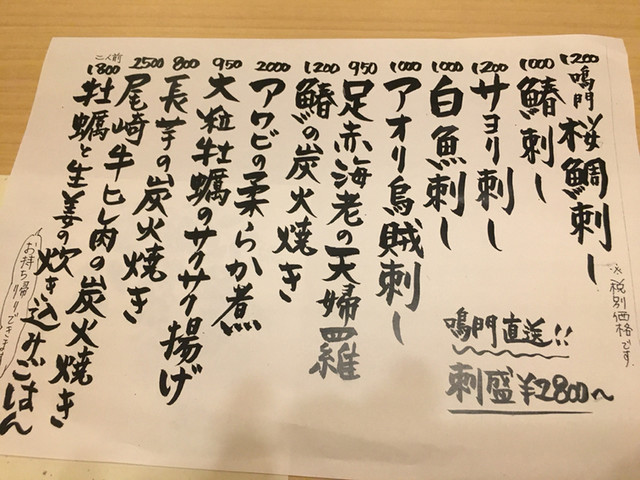 1200 鳴門桜鯛刺し
1000 鰆刺し
1200 サヨリ刺し
1000 白魚刺し
1000 アオリ烏賊刺し
950 足赤海老の天婦羅
1200 鰆の炭火焼き
2000 アワビの柔らか煮
950 大粒牡蠣のサクサク揚げ
800 長芋の炭火焼き
2500 尾崎牛ヒレ肉の炭火焼き
二人前 1800 牡蠣と生姜の炊き込みごはん
お持ち帰りできます
※税別価格です。
鳴門直送!!
刺盛¥2800〜